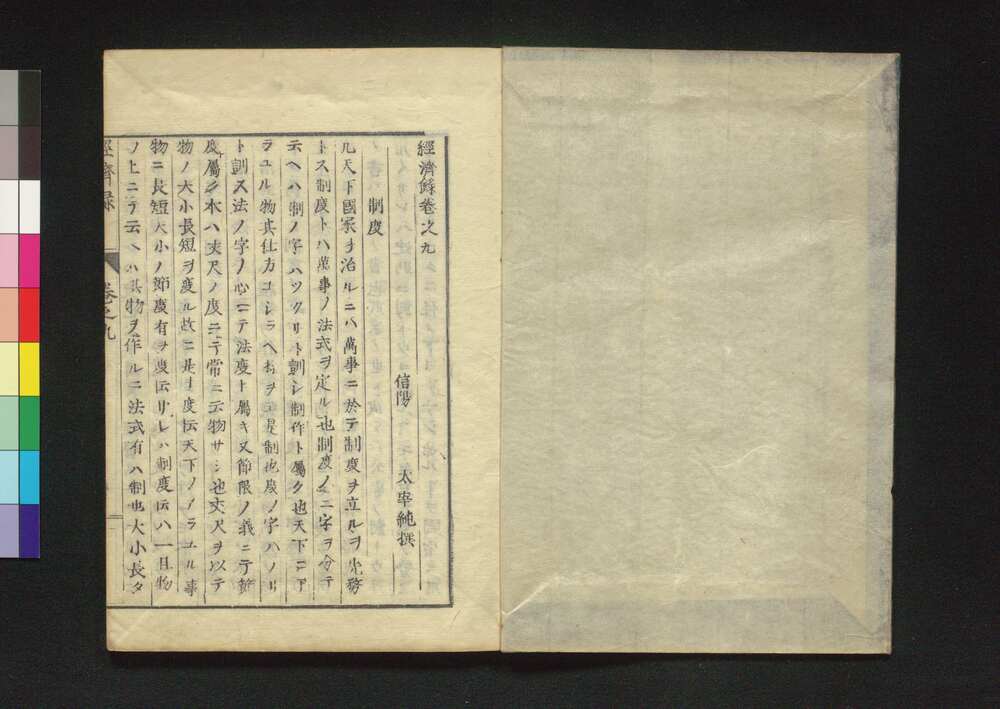 經濟録卷之九
信陽 太宰純撰
制度
凡天下國家ヲ治ルニハ萬事ニ於テ制度ヲ立ルヲ先務
トス制度トハ萬事ノ法式ヲ定ル也制度ノ二字ヲ分テ
云ヘハ制ノ字ハツクリト訓シ制作ト屬ク也天下ニア
ラユル物其仕方コシラヘ有ヲ是制也度ノ字ハノリ
ト訓ス法ノ字ノ心ニテ法度ト屬キ又節限ノ義ニテ節
度屬ク本ハ丈尺ノ度ニテ常ニ云物サシ也丈尺ヲ以テ
物ノ大小長短ヲ度ル故ニ是ヲ度云天下ノアラユル事
物ニ長短大小ノ節度有ヲ度云リレハ制度云ハ一且物
ノ上ニテ云ヘハ其物ヲ作ルニ法式有ハ制也大小長タ
經濟録 卷之九